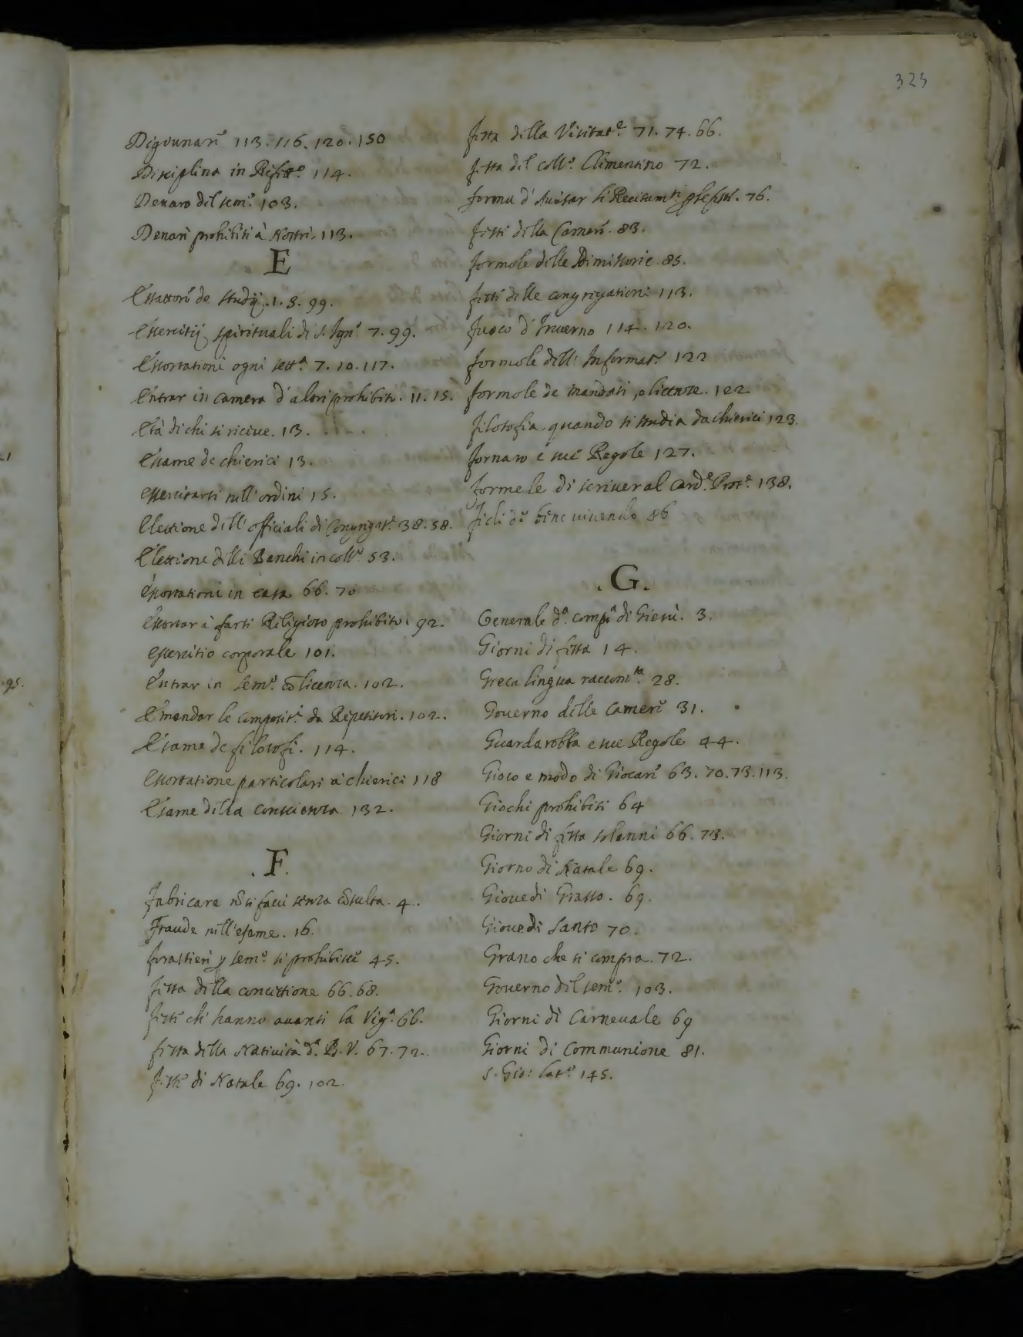 325
Digiunari 113. 116. 120. 150
Disciplina in Refett.º 114.
Denaro del sem.º 103.
Denari prohibiti à Nostri. 113.
E
de studij. 1. 8. 99.
Essercitij spirituali di S. Ign.º 7. 99.
Essortationi ogni sett.ª 7. 10. 117.
Entrar in camera d'altri prohibito. 11. 15.
Età di chi si riceue. 13.
Esame de chierici 13.
Essercitarsi nell'ordini 15.
Elettione dell'officiali di Congregat.ⁿⁱ 38. 58.
Elettione delli Banchi in coll.º 53.
Essortationi in casa 66. 70
Essortar à farsi Religioso prohibito. 92.
Essercitio corporale 101.
Entrar in sem.º cõ licenza. 102.
Emendar le composit.ⁿⁱ da Repetitori. 102.
Esame de filosofi. 114.
Essortatione particolari à chierici 118
Esame della conscienza 132.
.F.
Fabricare nõ si facci senza cõsulta. 4.
Fraude nell'esame. 16.
Forastieri p sem.º si prohibisce 45.
Festa della concettione 66. 68.
Feste ch' hanno auanti la Vig.ª 66.
Festa della Natiuità d.ª B. V. 67. 72.
Feste di Natale 69. 102.
Festa della Visitat.º 71. 74. 66.
Festa del coll.º Clementino 72.
Forma d'
76.
Festi della Camerª. 83.
Formole delle Dimissorie. 85.
Festi delle congregationi 113.
Fuoco d'Inuerno 114. 120.
Formole dell'Informatⁿⁱ 122
Formole de mandati, o licenze. 122
Filosofia quando si studia da chierici 123.
Fornaro e sue Regole 127.
Formele di scriuer al Card.º Prot.º 138.
86
.G.
Generale d.ª comp.ª di Giesù. 3.
Giorni di festa 14.
Greca lingua 28.
Gouerno delle Camerᵉ 31.
Guardarobba e sue Regole 44.
Gioco e modo di Giocarᵉ 63. 70. 73. 113.
Giochi prohibiti 64
Giorni di festa solenni 66. 73.
Giorno di Natale 69.
Giouedi Grasso. 69.
Giouedi Santo 70.
Grano che si compra. 72.
Gouerno del sem.º 103.
Giorni di Carneuale 69
Giorni di Communione 81.
S. Gio: Lat.º 145.